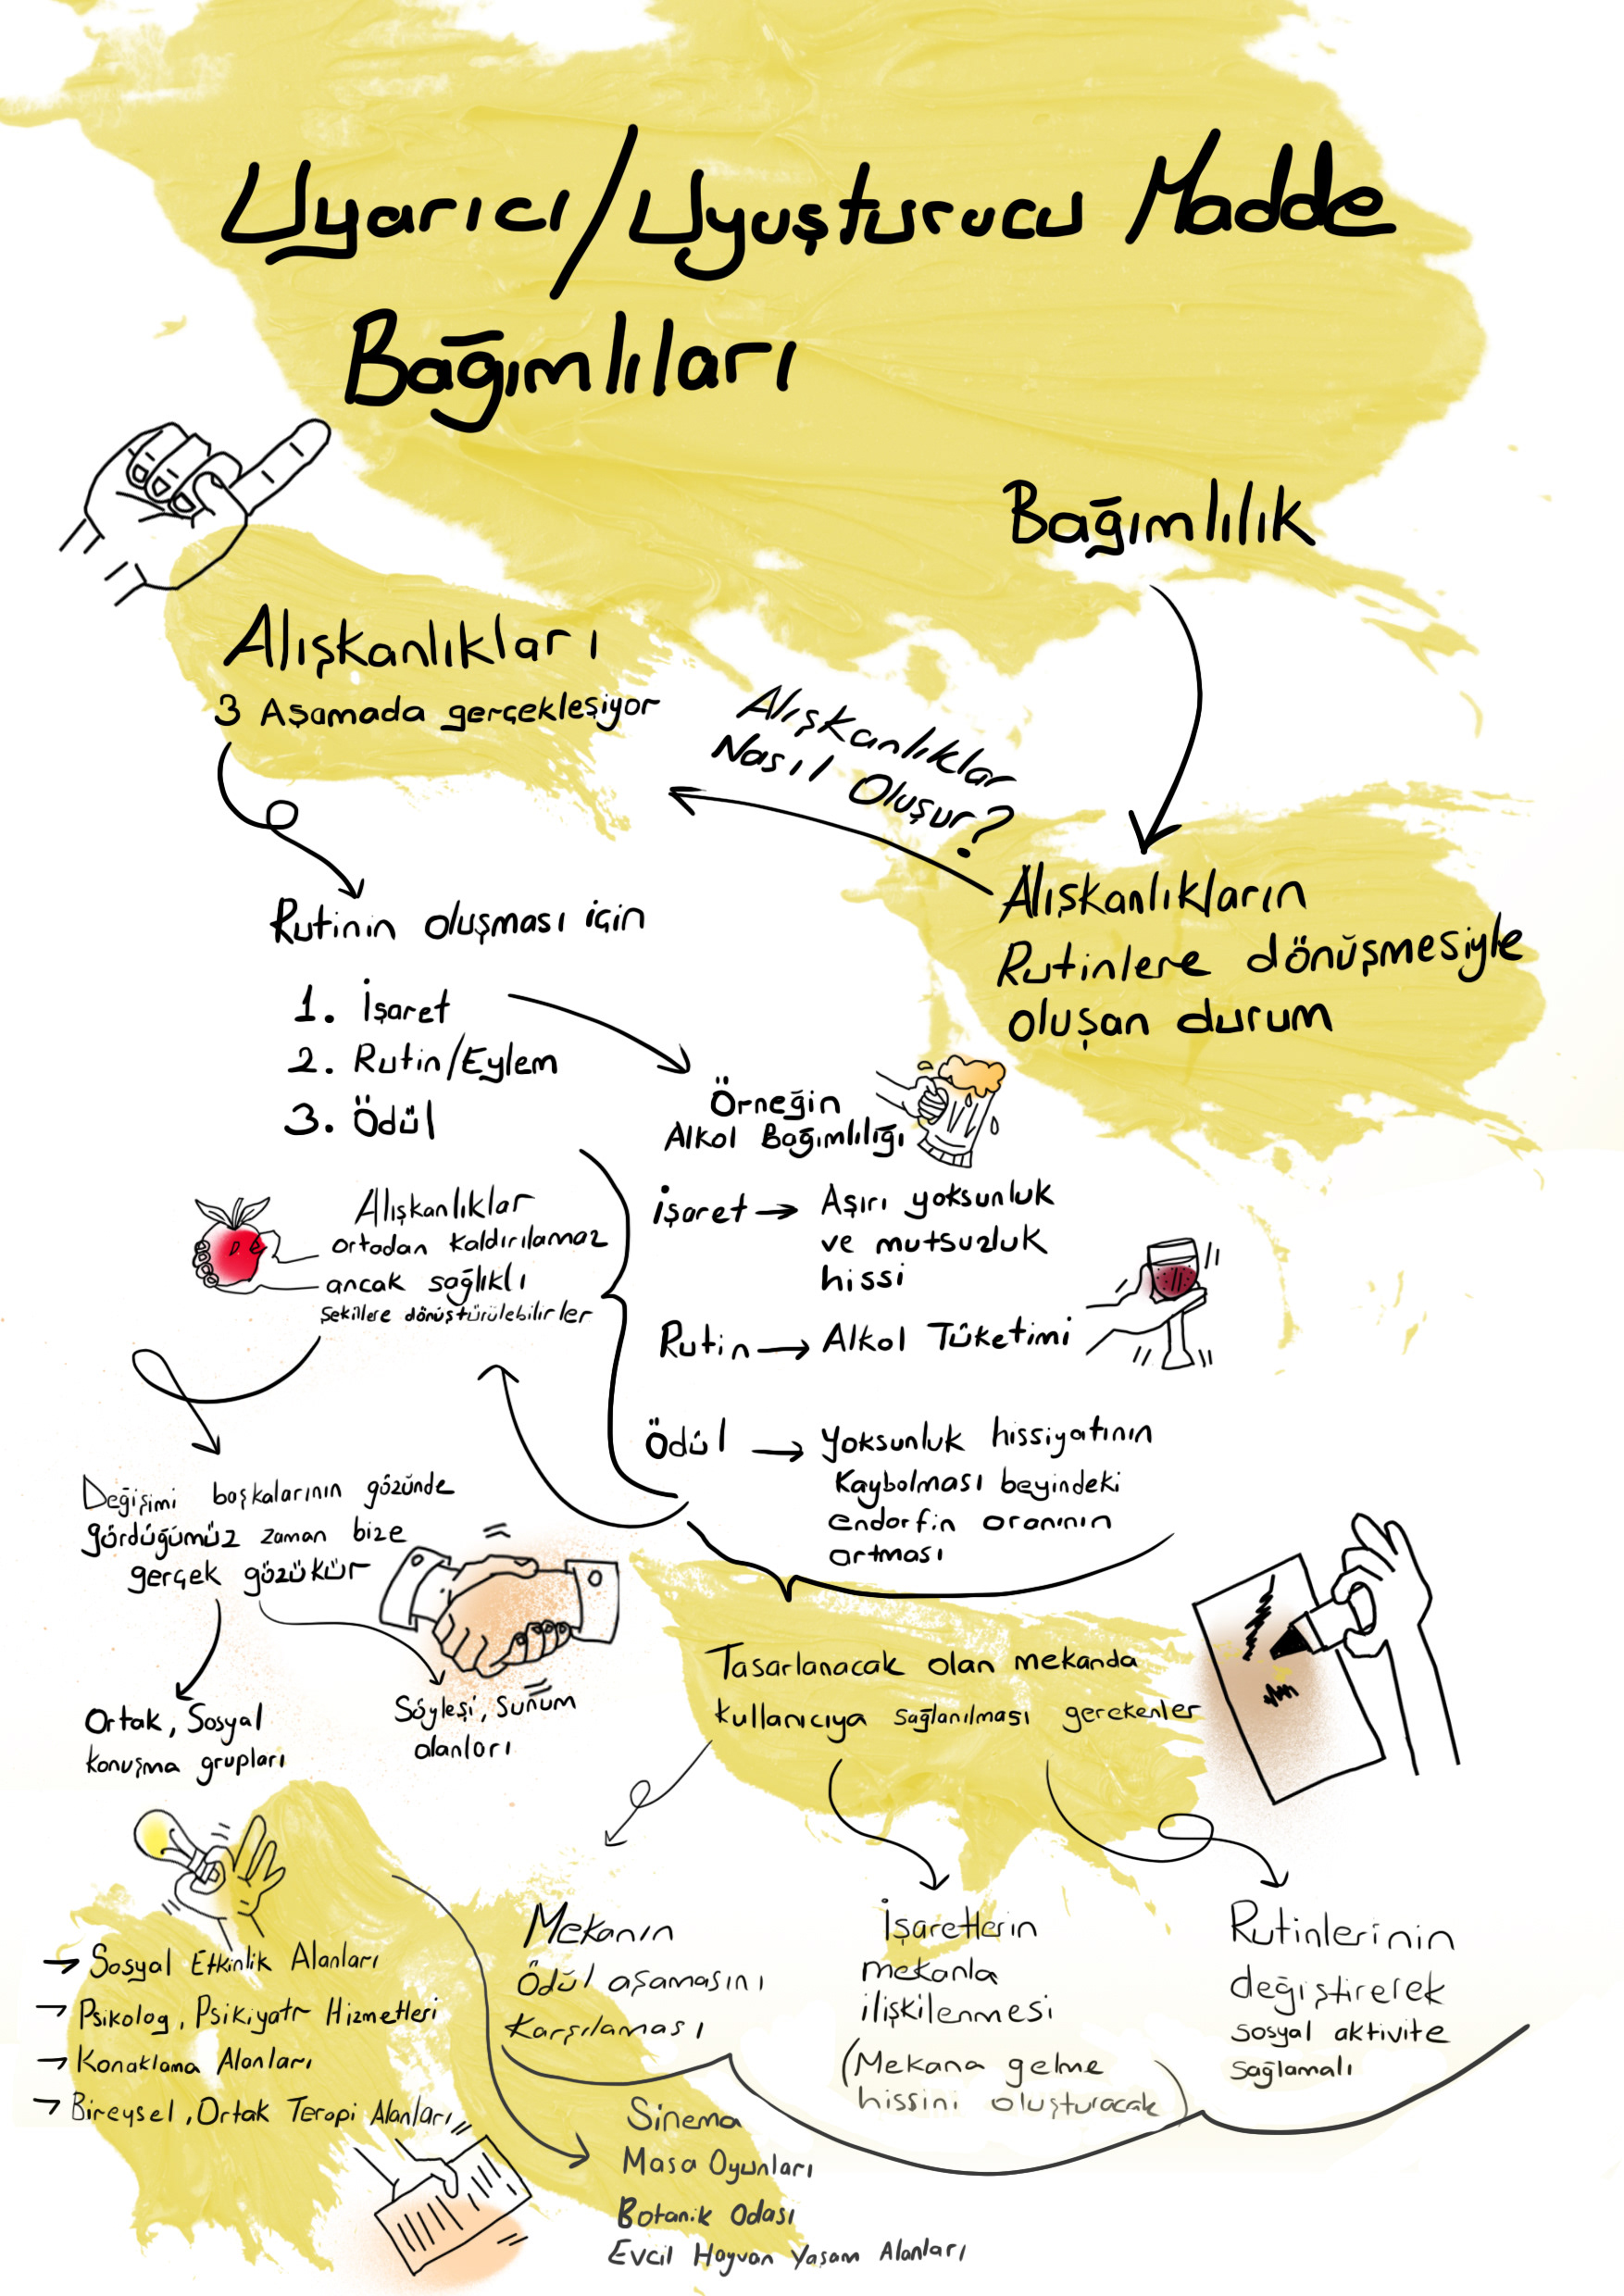 Uyarıcı/Uyuşturucu Madde
Bağımlıları
Bağımlılık
Alışkanlıkların
Rutinlere dönüşmesiyle
oluşan durum
Alışkanlıklar
Nasıl Oluşur?
Alışkanlıkları
3 Aşamada gerçekleşiyor
Rutinin oluşması için
1. İşaret
2. Rutin/Eylem
3. Ödül
Örneğin
Alkol Bağımlılığı
İşaret → Aşırı yoksunluk
ve mutsuzluk
hissi
Rutin → Alkol Tüketimi
Ödül → Yoksunluk hissiyatının
Kaybolması beyindeki
endorfin oranının
artması
Alışkanlıklar
ortadan kaldırılamaz
ancak sağlıklı
şekillere dönüştürülebilirler
Değişimi başkalarının gözünde
gördüğümüz zaman bize
gerçek gözükür
Ortak, Sosyal
konuşma grupları
Söyleşi, Sunum
alanları
Tasarlanacak olan mekanda
kullanıcıya sağlanılması gerekenler
Mekanın
Ödül aşamasını
Karşılaması
İşaretlerin
mekanla
ilişkilenmesi
(Mekana gelme
hissini oluşturacak)
Rutinlerinin
değiştirerek
sosyal aktivite
sağlamalı
→ Sosyal Etkinlik Alanları
→ Psikolog, Psikiyatr Hizmetleri
→ Konaklama Alanları
→ Bireysel, Ortak Terapi Alanları
Sinema
Masa Oyunları
Botanik Odası
Evcil Hayvan Yaşam Alanları